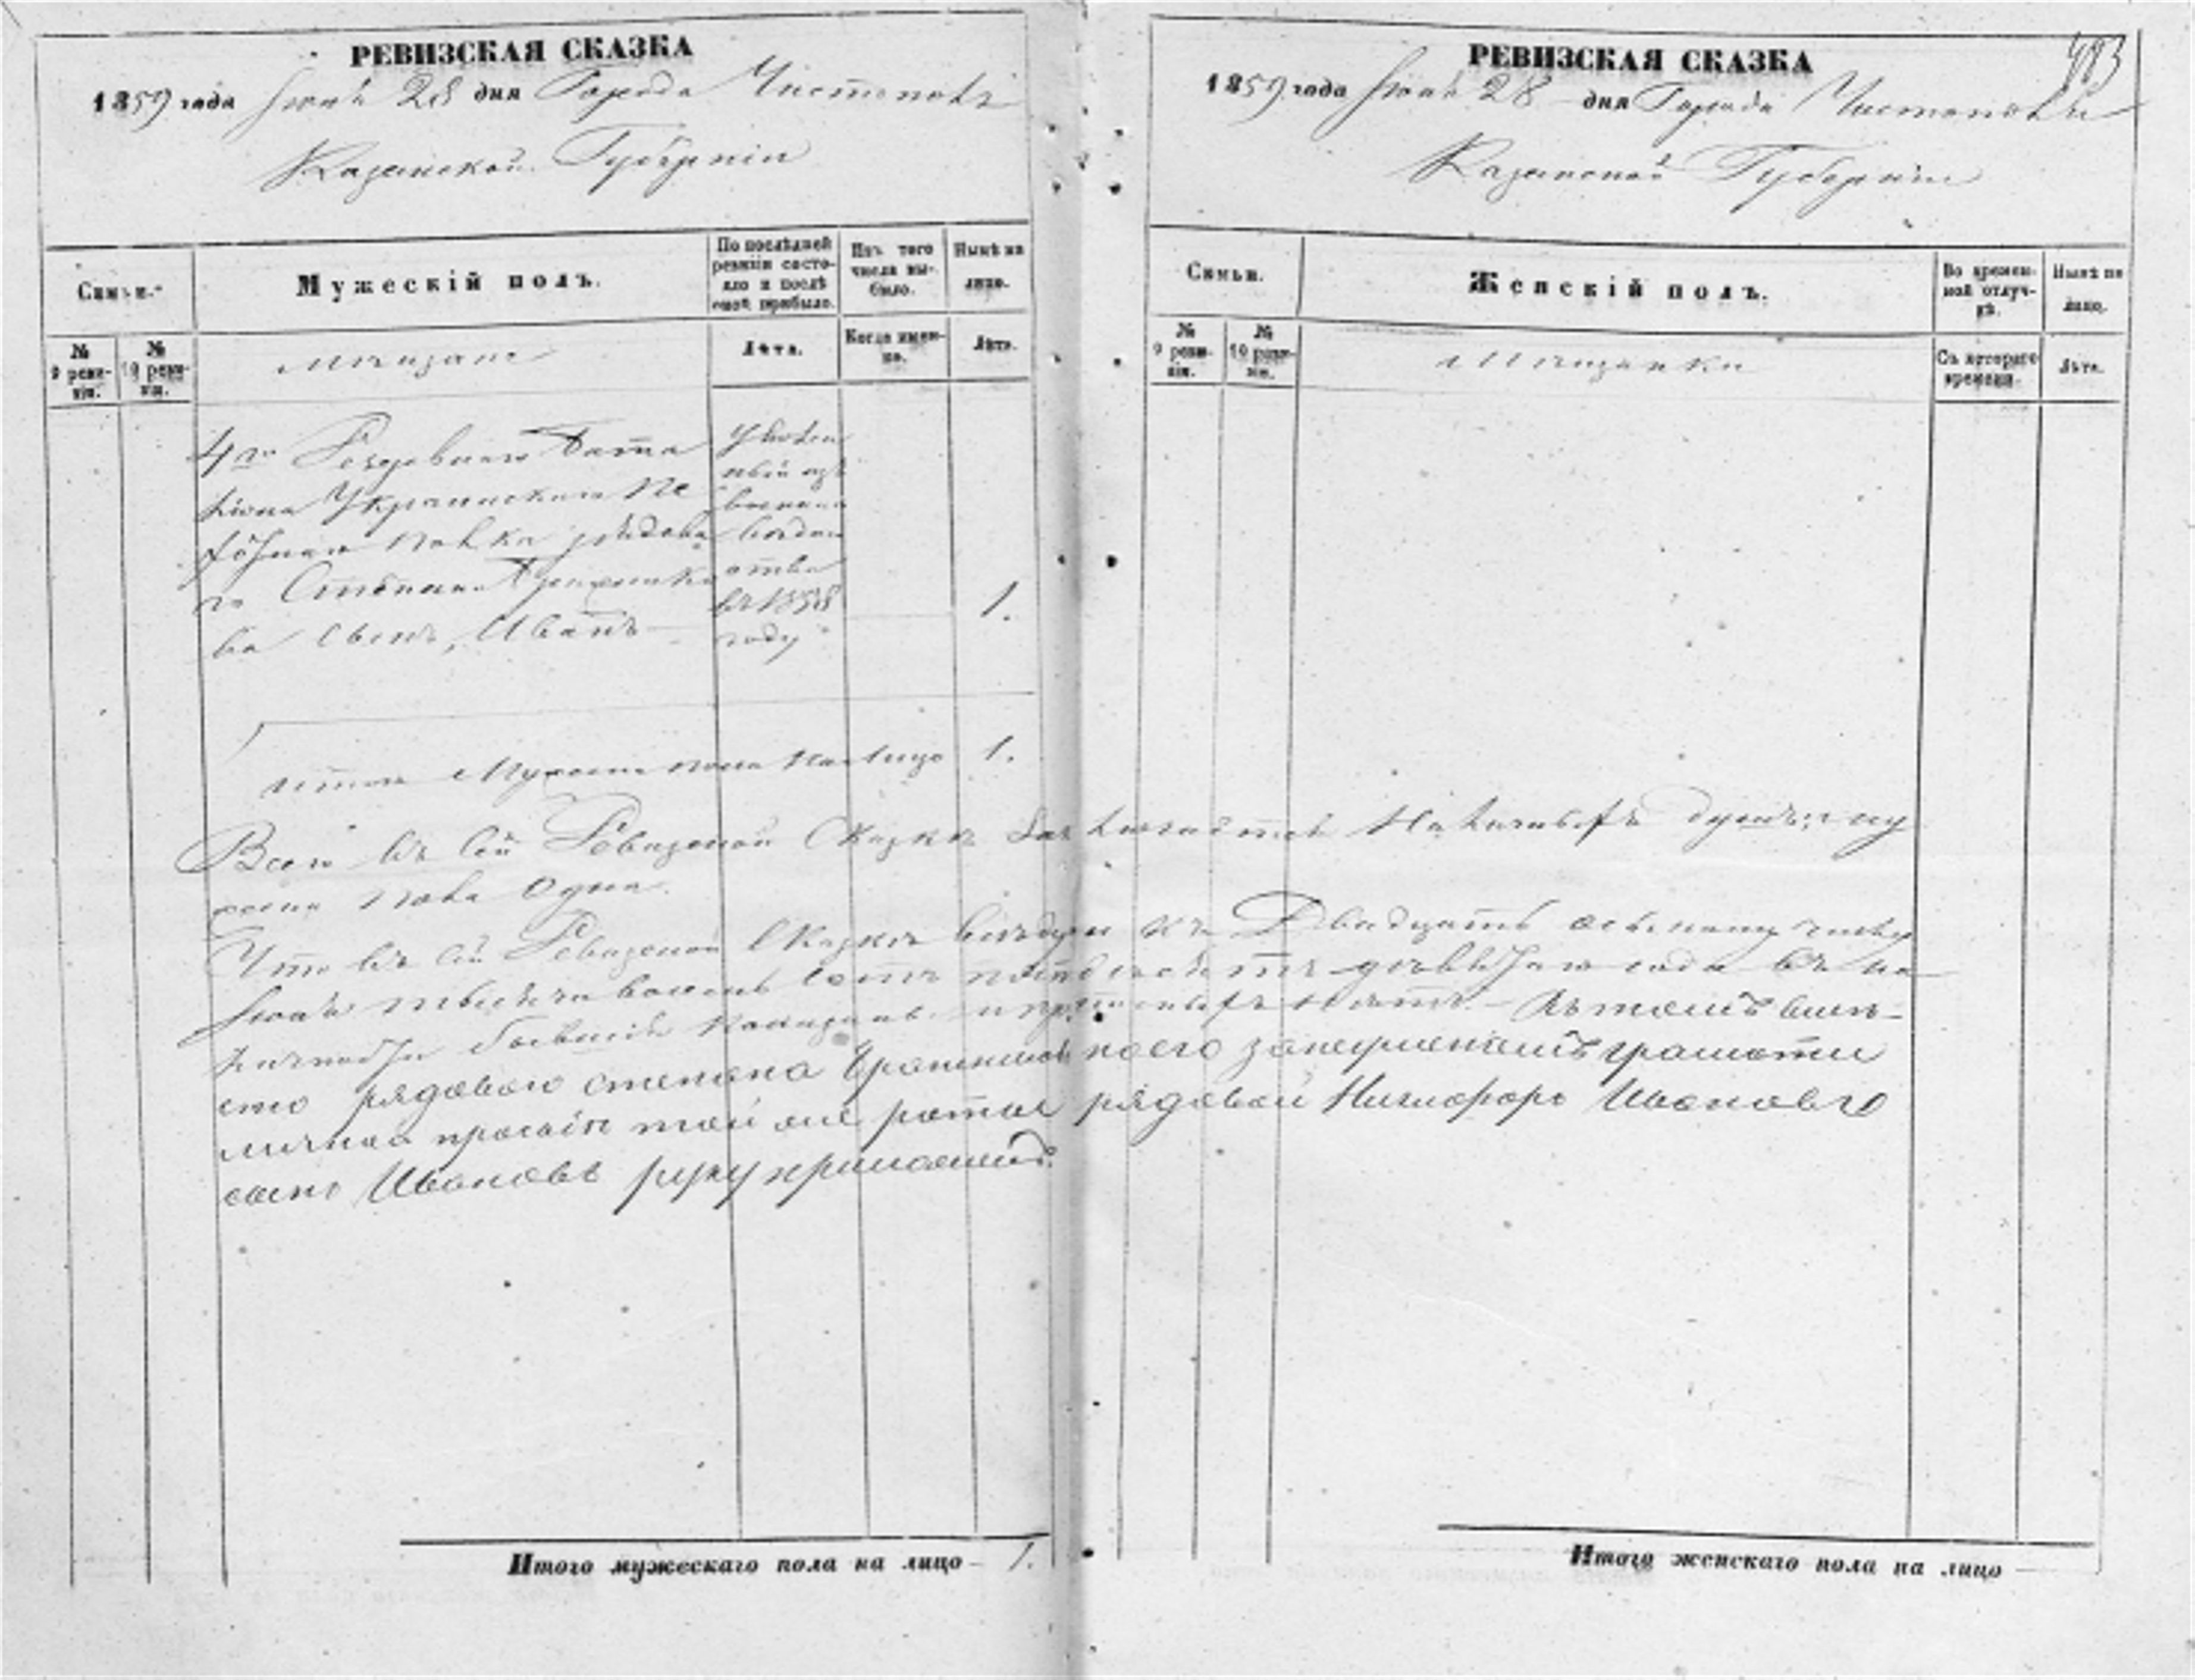 РЕВИЗСКАЯ СКАЗКА
1859 года Іюня 28 дня Города Чистополя
Казанской Губерніи
Семьи.
Мужескій полъ.
По послѣдней ревизіи состояло и послѣ оной прибыло.
Изъ того числа выбыло.
Нынѣ на лицо.
№ 9 ревизіи.
№ 10 ревизіи.
мѣщане
Лѣта.
Когда именно.
Лѣта.
4го Резервнаго Бата
ліона Украинскаго Пе
хотнаго полка рядова
го Степана
ва сынъ, Иванъ
Уволен
ный изъ
военна
ведом
ства
въ 1858
году
1.
итого Мужеска пола на лицо 1.
Всего въ сей Ревизской Сказкѣ заключается Наличныхъ душъ: му
жеска пола одна.
Что въ сей Ревизской Сказкѣ къ Двадцать осьмому числу
Іюня тысяча восемь сотъ пятьдесятъ девятаго года въ на
личности показаны и нѣтъ. Въ томъ вмѣ
сто рядоваго степана
личной прозбѣ той же роты рядовой Никифоръ Ивановъ
сынъ Ивановъ руку приложилъ.
Итого мужескаго пола на лицо 1.
РЕВИЗСКАЯ СКАЗКА
1859 года Іюня 28 дня Города Чистополя
Казанской Губерніи
Семьи.
Женскій полъ.
Во временной отлучкѣ.
Нынѣ на лицо.
№ 9 ревизіи.
№ 10 ревизіи.
Мѣщанки
Съ котораго времени.
Лѣта.
Итого женскаго пола на лицо